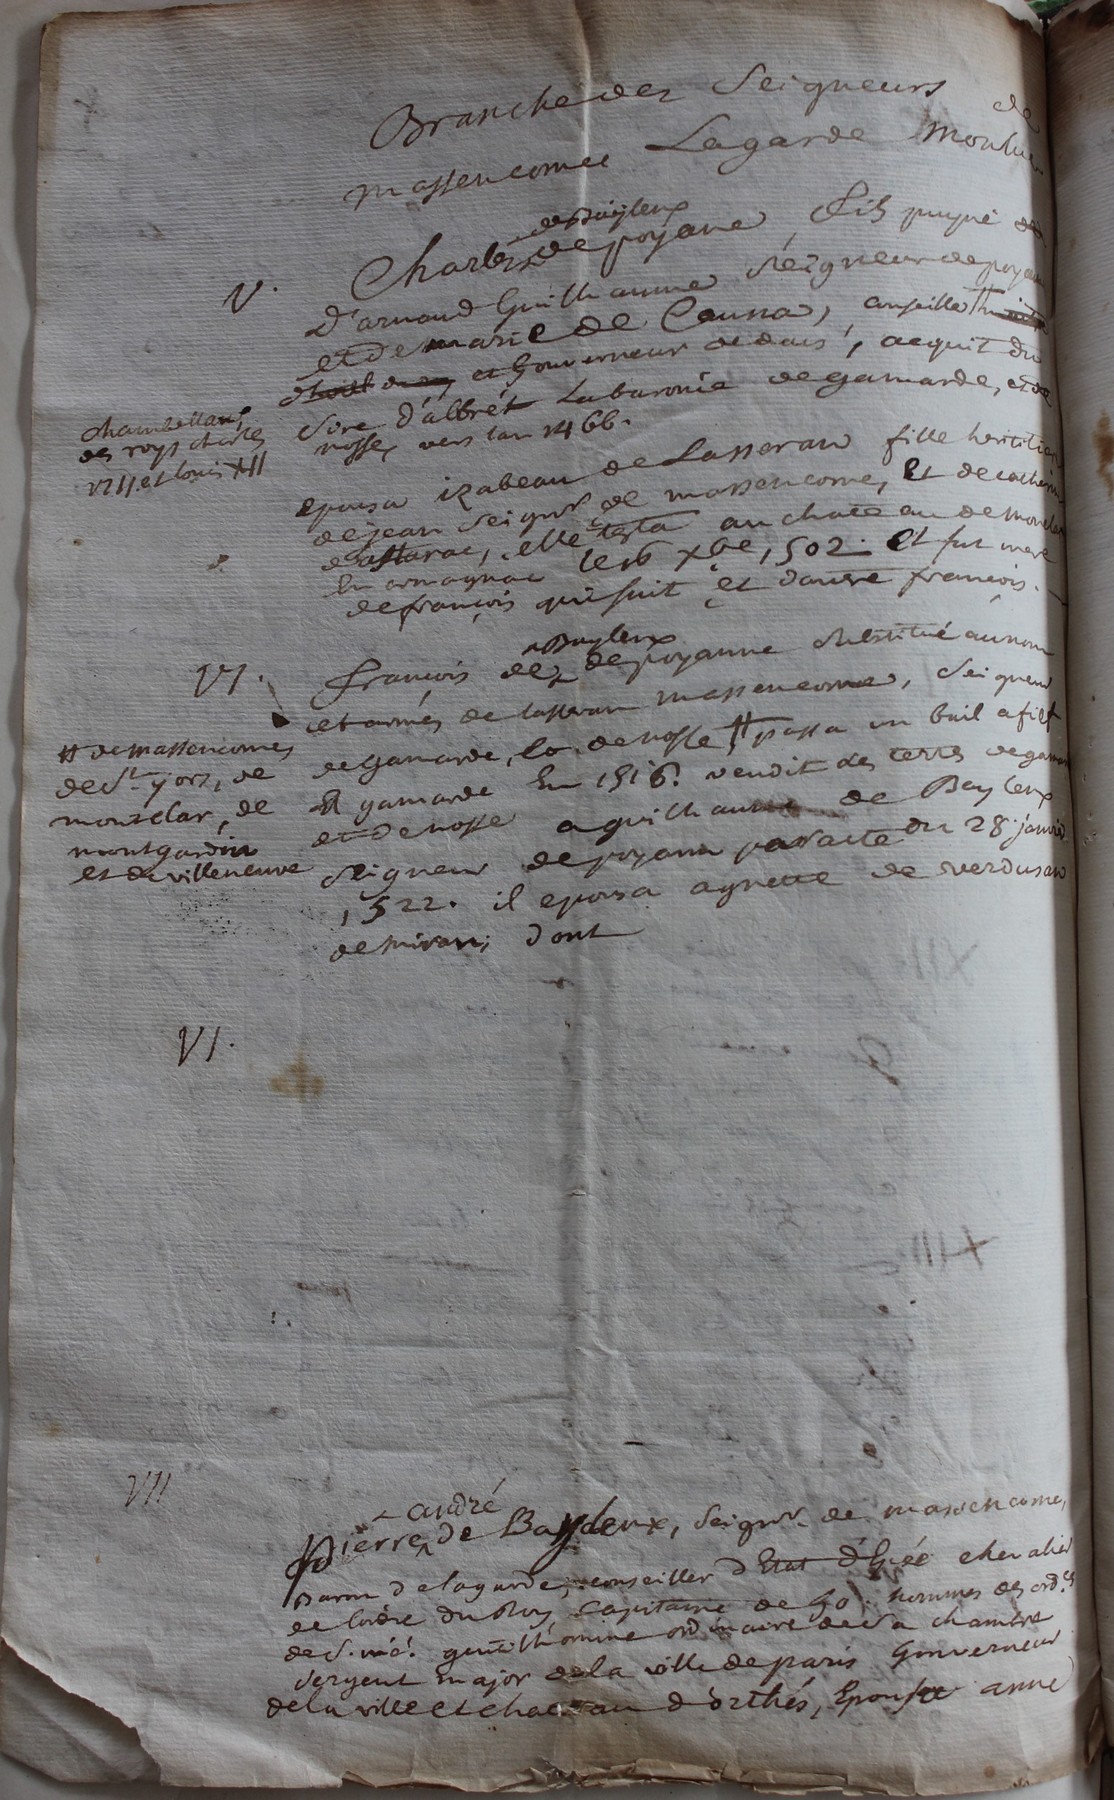 Branche des Seigneurs de
massencomes Lagarde Monluc
V.
de Bayleux
Charles de poyane fils puyné
D'arnaud Guilhaume Seigneur de poyane
et de marie de Cauna, conseiller
et Gouverneur de dacs, acquit du
chambellan
des roys charles
VIII et louis XII
Sire d'albret La baronie de gamarde, et de
nosse, vers lan 1466.
epousa izabeau de Lasseran fille heritiere
de jean Seignr de massencome, Et de catherine
dastarac, elle testa au chateau de monclar
En armagnac le 16 xbe 1502. Et fut mere
de françois qui suit et dautre françois.
VI.
Bayleux
françois de de poyanne substitué au nom
et armes de lasseran massencome, Seigneur
# de massencomes
de St yors, de
monclar, de
montgardin
et de villeneuve
de gamarde, de nosse # passa un bail a fief
a gamarde En 1516. vendit les terres de gamarde
et de nosse a guilhaume de Bayleux
Seigneur de poyane par acte du 28 janvier
1522. il epousa agnette de verdusan
de miran; dont
VI.
VII
andré
Pierre de Baydeux, Seignr de massencome,
Baron de lagarde, conseiller d'Etat d'Epée chevalier
de lordre du Roy Capitaine de 50 hommes des ord.es
de S. m.é. gentilhomme ordinaire de Sa chambre
Sergent major de la ville de paris Gouverneur
de la ville et chateau d'orthés, Epousa anne